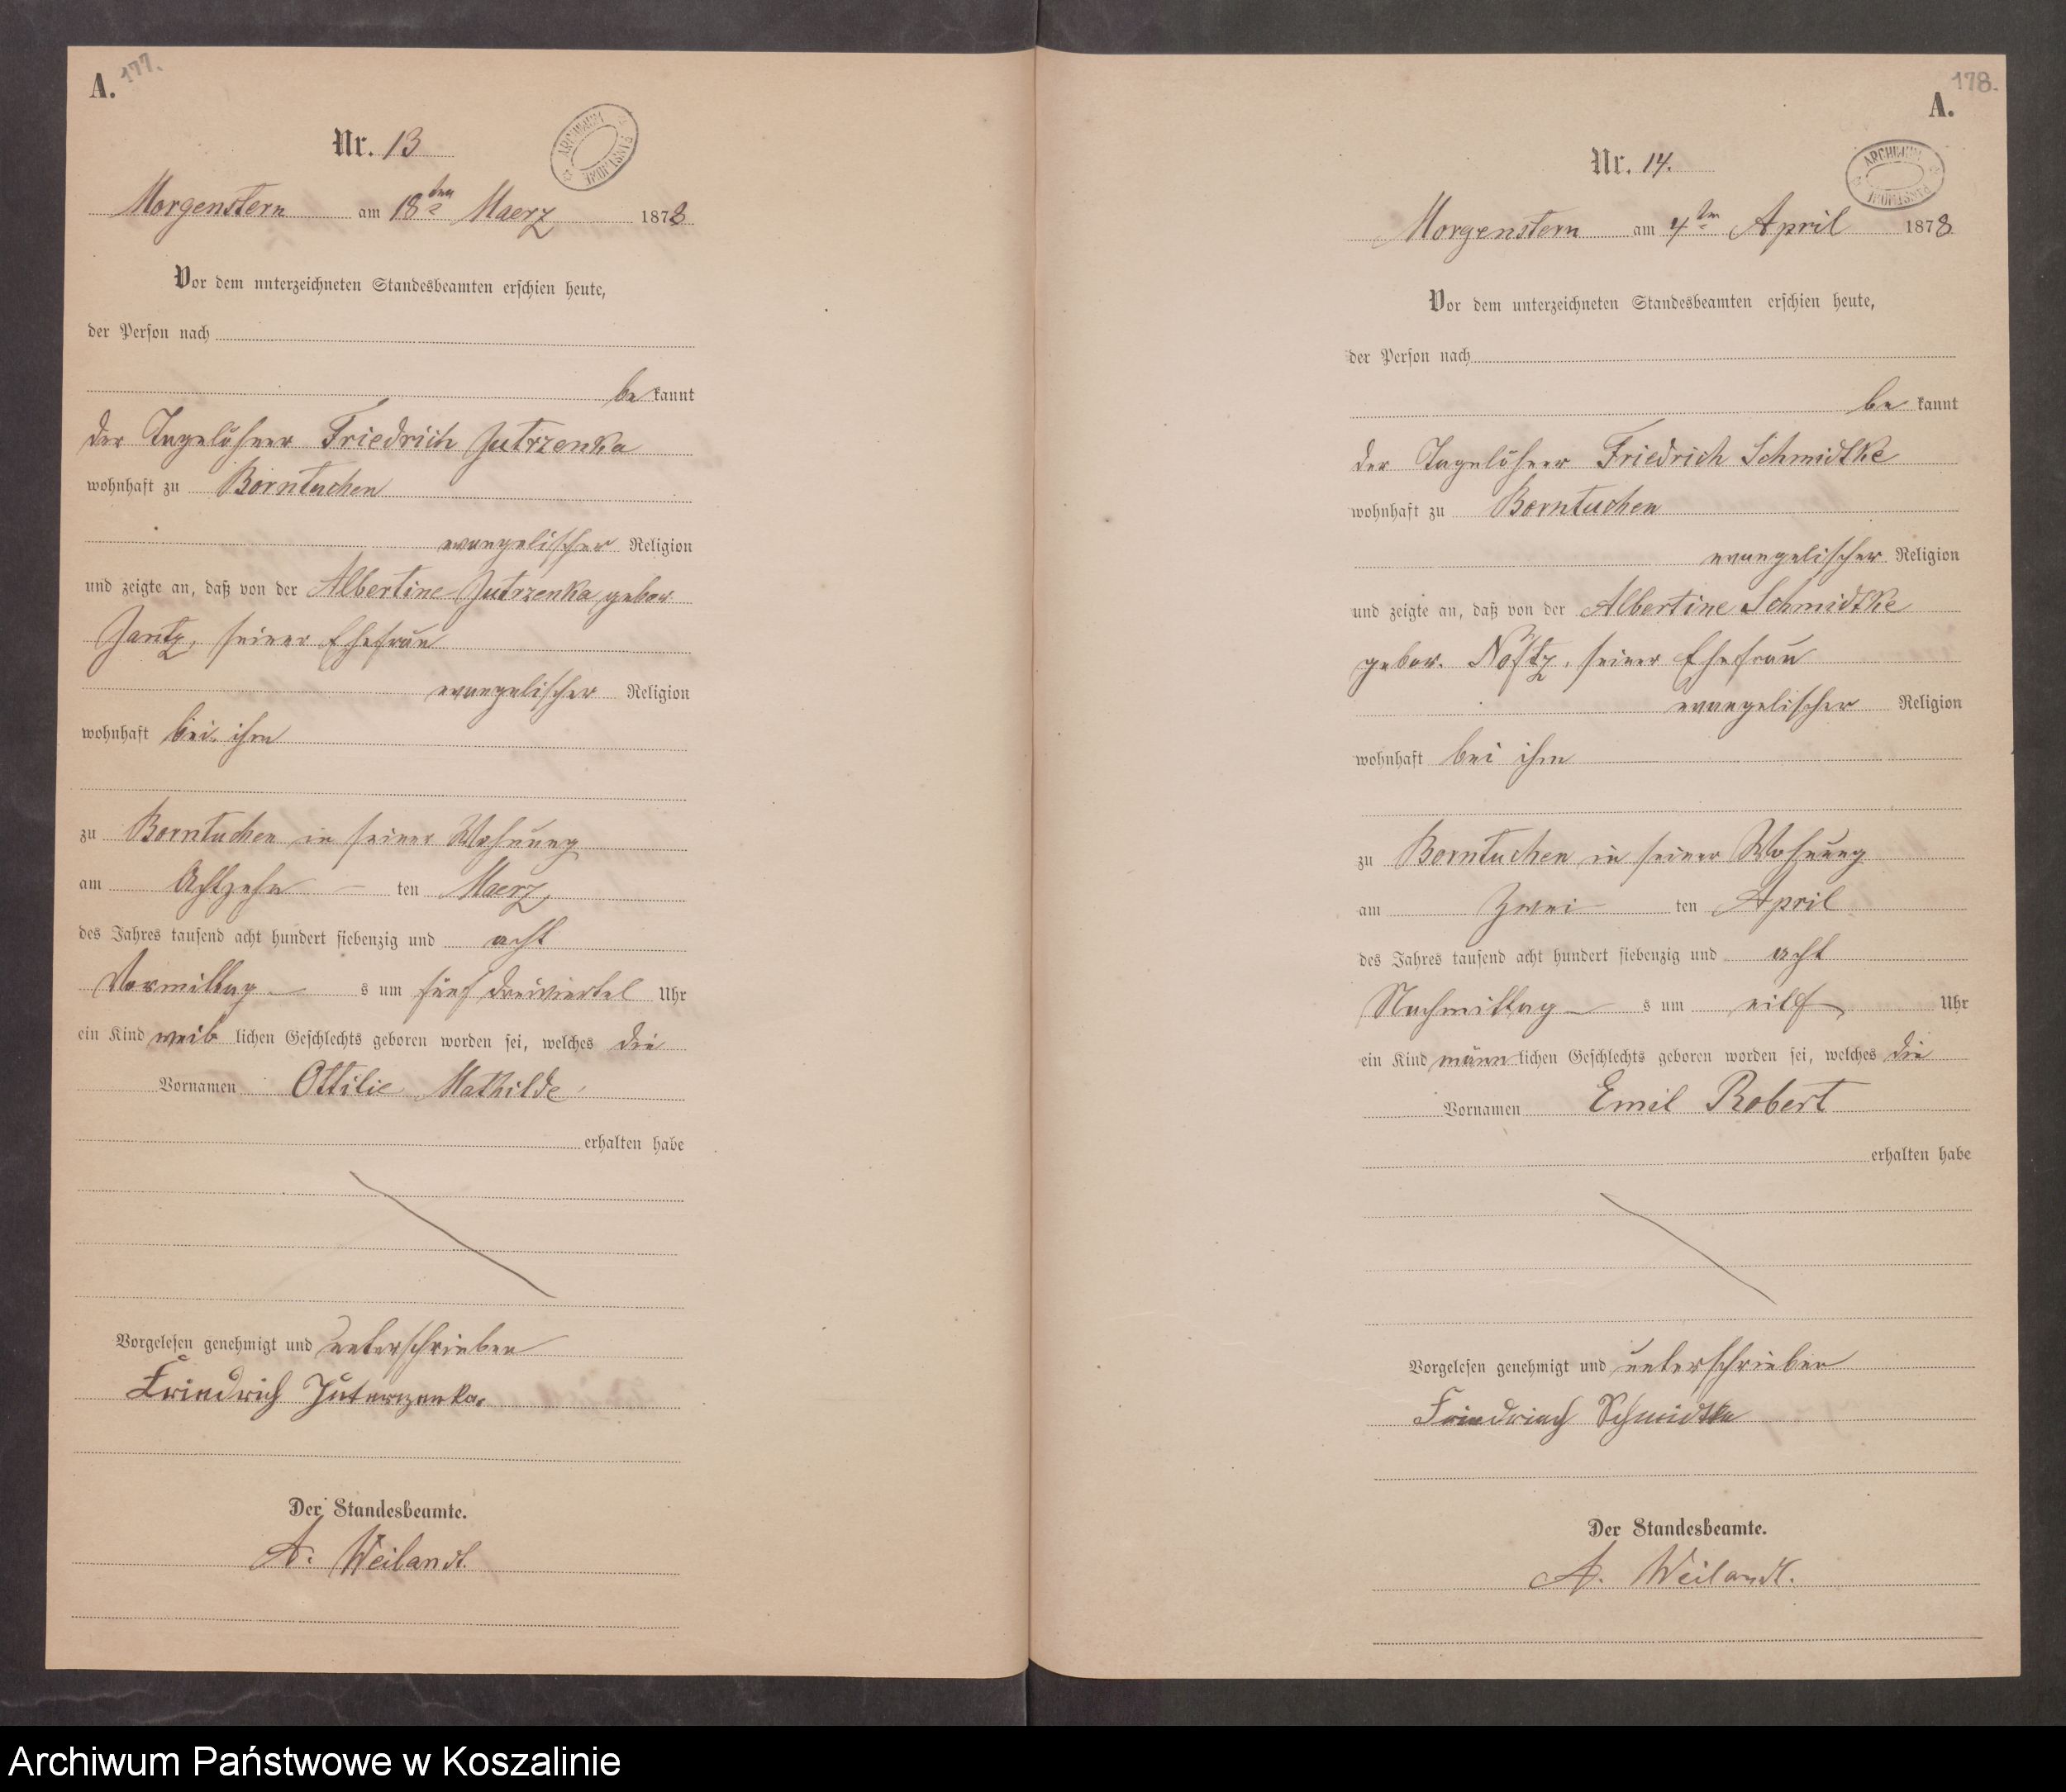 177.
A.
Nr. 13
ARCHIWUM PAŃSTWOWE
Morgenstern am 18ten Maerz 1878
Vor dem unterzeichneten Standesbeamten erschien heute,
der Person nach
be kannt
der Tagelöhner Friedrich Jutrzenka
wohnhaft zu Borntuchen
evangelischer Religion
und zeigte an, daß von der Albertine Jutrzenka gebor.
Jantz, seiner Ehefrau
evangelischer Religion
wohnhaft bei ihm
zu Borntuchen in seiner Wohnung
am Achtzehn ten Maerz
des Jahres tausend acht hundert siebenzig und acht
Vormittag s um fünf dreiviertel Uhr
ein Kind weib lichen Geschlechts geboren worden sei, welches die
Vornamen Ottilie Mathilde
erhalten habe
Vorgelesen genehmigt und unterschrieben
Friedrich Juterzenka.
Der Standesbeamte.
A. Weilandt.
178.
A.
Nr. 14.
ARCHIWUM PAŃSTWOWE
Morgenstern am 4ten April 1878
Vor dem unterzeichneten Standesbeamten erschien heute,
der Person nach
be kannt
der Tagelöhner Friedrich Schmidtke
wohnhaft zu Borntuchen
evangelischer Religion
und zeigte an, daß von der Albertine Schmidtke
gebor. seiner Ehefrau
evangelischer Religion
wohnhaft bei ihm
zu Borntuchen in seiner Wohnung
am Zwei ten April
des Jahres tausend acht hundert siebenzig und acht
Nachmittag s um eilf Uhr
ein Kind männ lichen Geschlechts geboren worden sei, welches die
Vornamen Emil Robert
erhalten habe
Vorgelesen genehmigt und unterschrieben
Friedriech Schmidtke
Der Standesbeamte.
A. Weilandt.
Archiwum Państwowe w Koszalinie